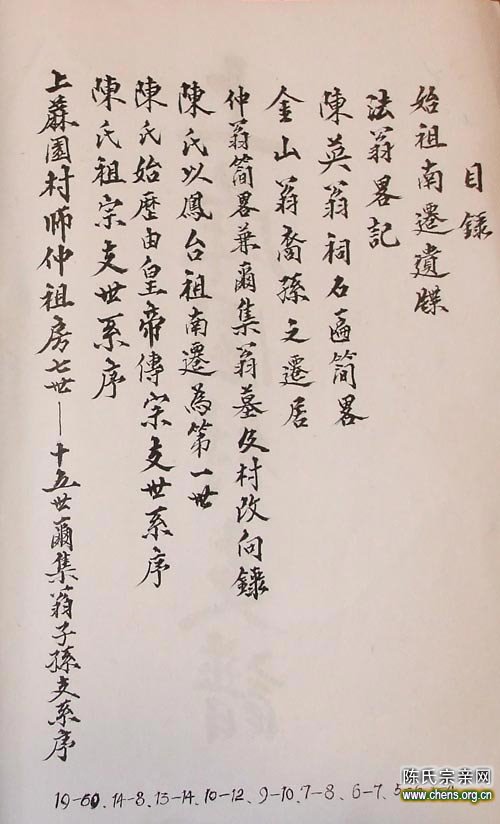 目錄
始祖南遷遺牒
法翁畧記
陳英翁祠石匾简畧
金山翁裔孫之遷居
仲翁简畧兼爾集翁墓及村改向錄
陳氏以鳳台祖南遷為第一世
陳氏始歷由皇帝傳宗支世系序
陳氏祖宗支世系序
上蔴園村師仲祖房七世—十五世爾集翁子孫支系序
19-60、14-8、13-14、10-12、9-10、7-8、6-7、
陈氏宗亲网
www.chens.org.cn